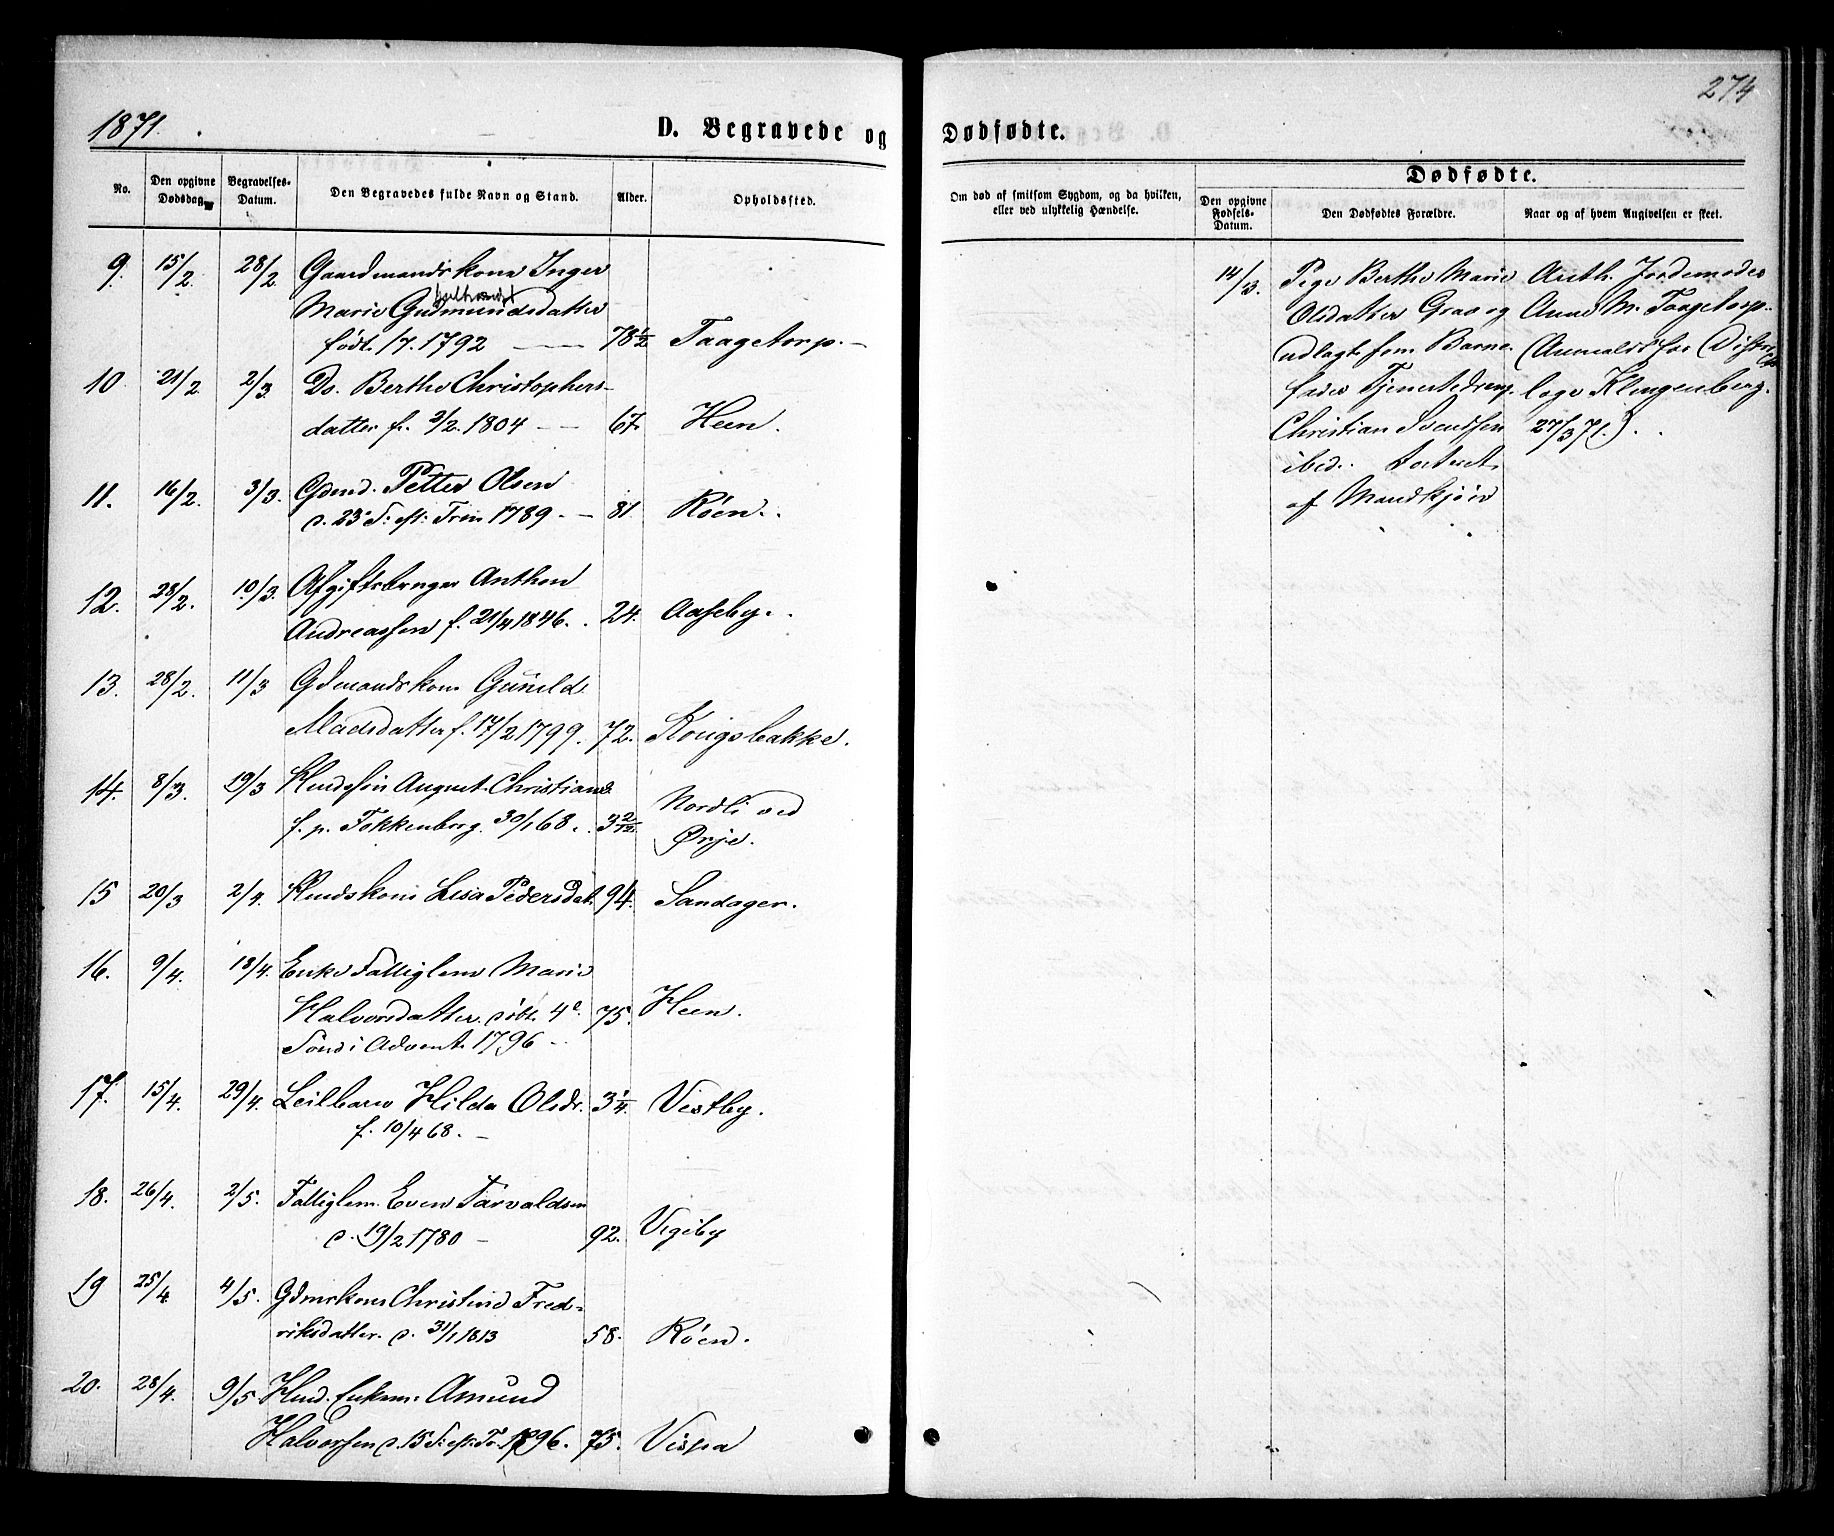 274
1871.
D. Begravede og Dødfødte.
No.
Den opgivne Dødsdag.
Begravelses-Datum.
Den Begravedes fulde Navn og Stand.
Alder.
Opholdssted.
Om død af smitsom Sygdom, og da hvilken,
eller ved ulykkelig Hændelse.
Dødfødte.
Den opgivne Fødsels-Datum.
Den Dødfødtes Forældre.
Naar og af hvem Angivelsen er skeet.
9. 15/2. 28/2 Gaardmandskone Inger
Marie Gudmundsdatter
født 1/7. 1792 — 78 1/2 Taagetorp. –
10 21/2. 2/3. Do. Berthe Christophers-
datter f. 3/2. 1804 – – 67. Heen.
11. 16/2. 3/3. Gdmd. Petter Olsen
d. 23 S: eft: Trin 1789 – – 81. Röen.
12. 28/2. 10/3. Afgiftsbruger Anthon
Andreassen f. 21/4 1846. 24. Aaseby.
13. 28/2. 11/3 Gdmandskone Gunild
Madsdatter f. 17/2 1799. 72. Kongsbakke.
14. 8/3. 19/3 Husmdssön August Christians.
f. p. Fokkenborg. 30/1 68. 3 2/12. Nordli ved
Ørje.
15 20/3 2/4. Husmdskone Lisa Pedersdat. 94. Sandager.
16. 9/4. 18/4. Enke Fattiglem Marie
Halvorsdatter. döbt. 4de 75. Heen.
Sönd i Advent 1796 –
17. 15/4. 29/4. Leilbarn Hilda Olsdr. 3 1/4. Vestby.
f. 10/4 68. –
18. 26/4. 2/5. Fattiglem. Even Tarvaldsen
d. 19/2 1780 – 92. Vegeby
19 25/4 4/5. Gdmskone Christine Fred-
riksdatter. d. 31/1 1813 58. Röen.
20. 28/4. 9/5 Husmd. Enkem. Amund
Halvorsen d. 15 S: eft: Tr. 1796. 75. Vispa
14/3. Pige Berthe Marie
Olsdatter Graa og
udlagt som Barne-
fader Tjenestedreng
Christian Svendsen
ibid.
af Mandkjön
Anth. Jordemoder
Anne M. Taagetorp.
(Anmeldt for Distrikts
læge Klingenberg.
27/3 71.)